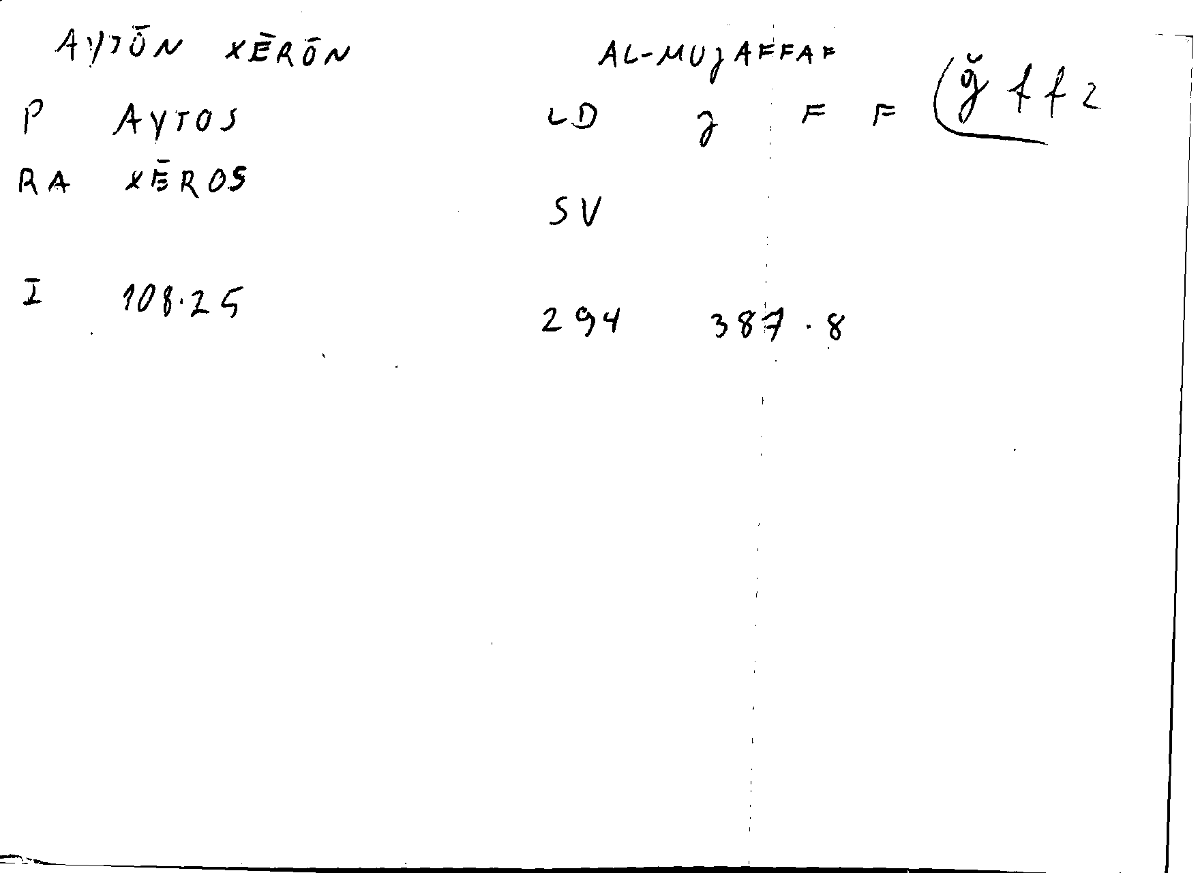 AYTŌN XĒRŌN AL-MUJAFFAF
P AYTOS LD J F F (ǧ f f 2
RA XĒROS
SV
I 108.25 294 387.8